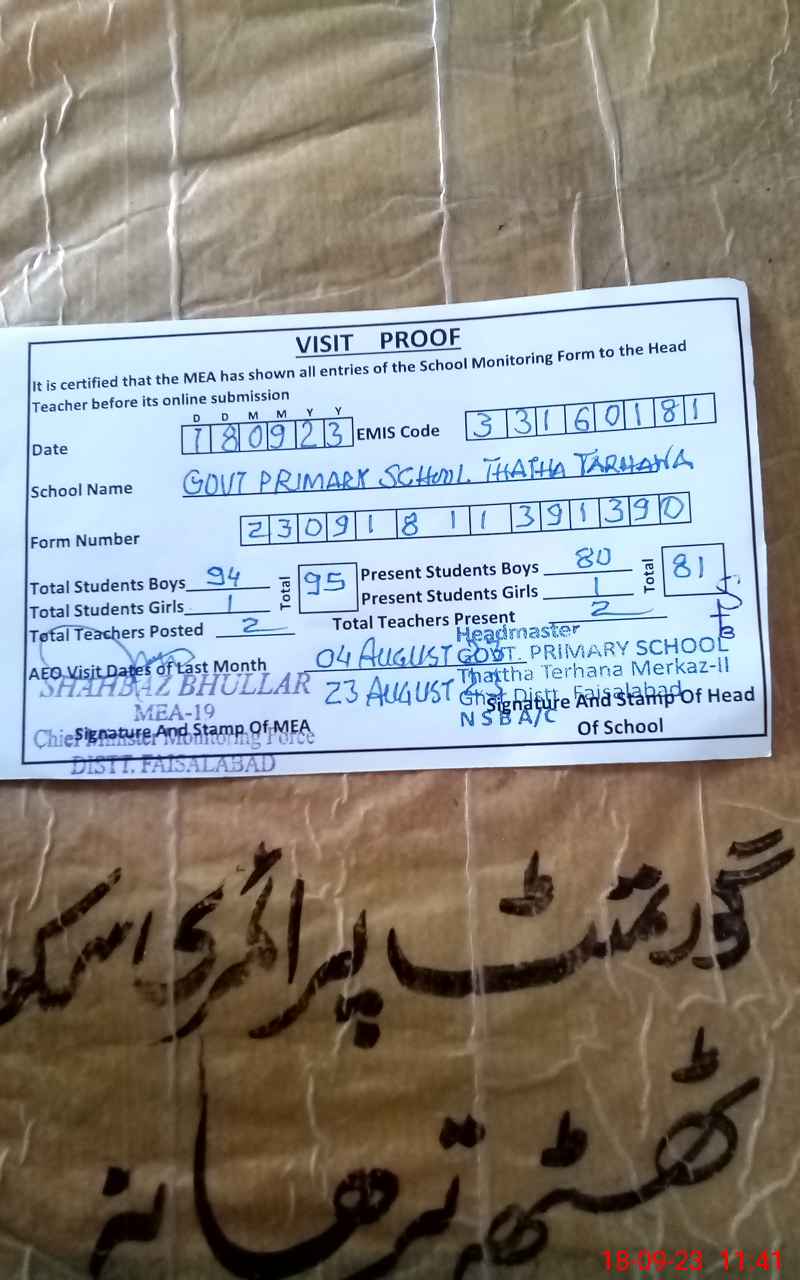 VISIT PROOF
It is certified that the MEA has shown all entries of the School Monitoring Form to the Head
Teacher before its online submission
D D M M Y Y
Date 180923 EMIS Code 33160181
School Name GOVT PRIMARY SCHOOL THATHA TARHANA
Form Number 23091811391390
Total Students Boys 94 Total 95 Present Students Boys 80 Total 81
Total Students Girls 1 Present Students Girls 1
Total Teachers Posted 2 Total Teachers Present 2
AEO Visit Dates of Last Month 04 AUGUST 23
23 AUGUST 23
Headmaster
GOVT. PRIMARY SCHOOL
Thattha Terhana Merkaz-II
Ghat Distt. Faisalabad
NSB A/C
Signature And Stamp Of Head
Of School
SHAHBAZ BHULLAR
MEA-19
Chief Minister Monitoring Force
DISTT. FAISALABAD
Signature And Stamp Of MEA
گورنمنٹ پرائمری اسکو
ٹھٹھہ ترھانہ
18-09-23 11:41